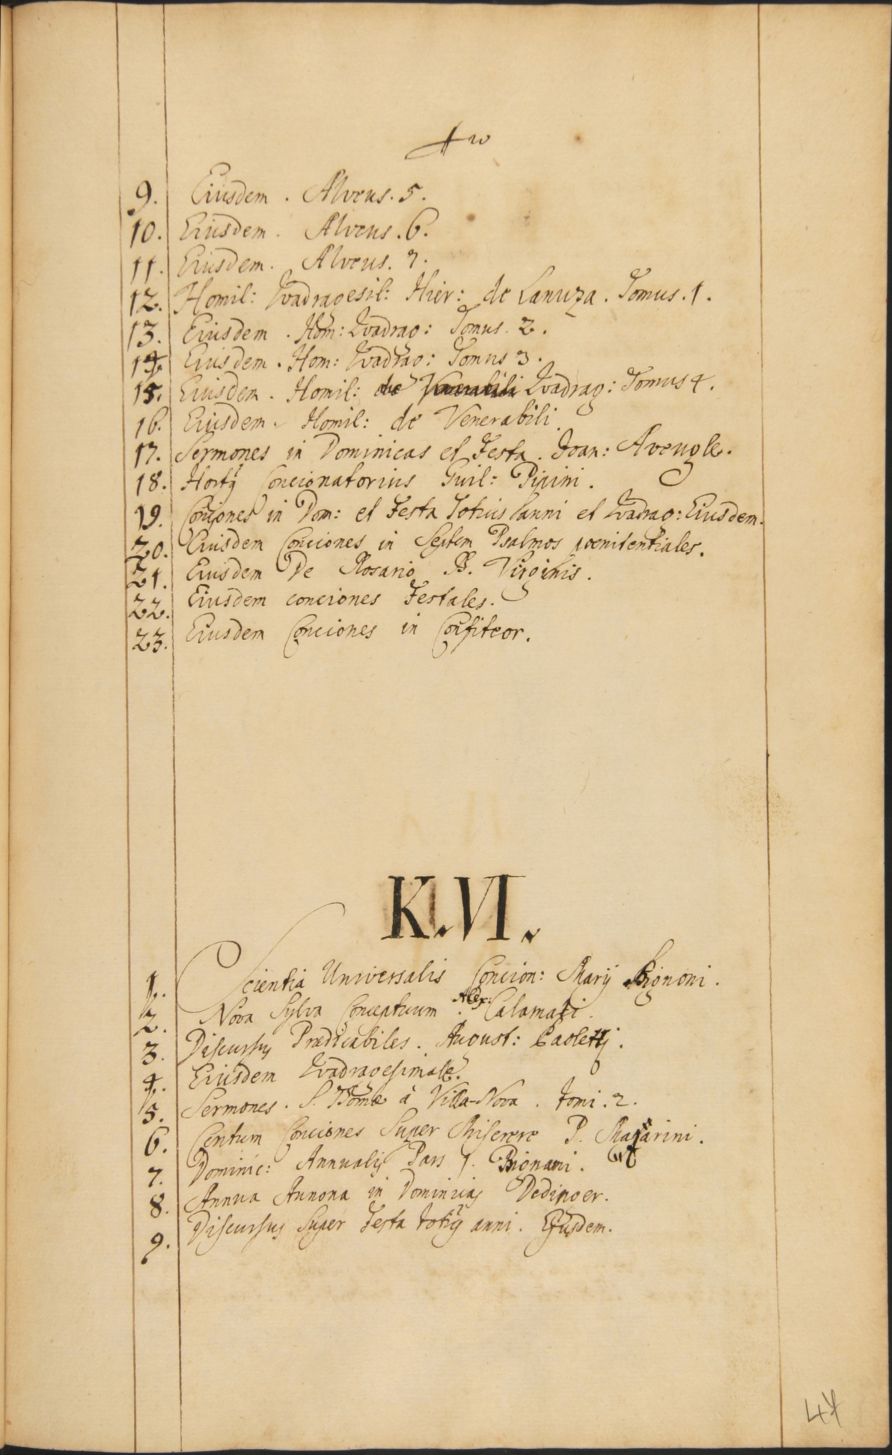 9. Eiusdem. Alveus. 5.
10. Eiusdem. Alveus. 6.
11. Eiusdem. Alveus. 7.
12. Homil: Quadragesil: Hier: de Lanuza. Tomus. 1.
13. Eiusdem. Hom: Quadrag: Tomus. 2.
14. Eiusdem. Hom: Quadrag: Tomus 3.
15. Eiusdem. Homil: de Venerabili Quadrag: Tomus 4.
16. Eiusdem. Homil: de Venerabili
17. Sermones in Dominicas et Festa. Joan: Avengle.
18. Hortus Concionatorius Guil: Pipini.
19. Conciones in Dom: et Festa Totius anni et Quadrag: Eiusdem.
20. Eiusdem Conciones in Septem Psalmos poenitentiales.
21. Eiusdem De Rosario B. Virginis.
22. Eiusdem conciones Festales.
23. Eiusdem Conciones in Confiteor.
K.VI.
1. Scientia Universalis Concion: Marij Bignoni.
2. Nova Sylva Conceptuum. Alex: Calamati.
3. Discursus Praedicabiles. August: Paoletti.
4. Eiusdem Quadragesimale.
5. Sermones. S. Thomae à Villa-Nova. Tomi. 2.
6. Centum Conciones Super Miserere P. Mazarini.
7. Dominic: Annualis Pars 1. Bignani.
8. Annua Annona in Dominicas Dedinger.
9. Discursus Super Festa totius anni. Ejusdem.
47